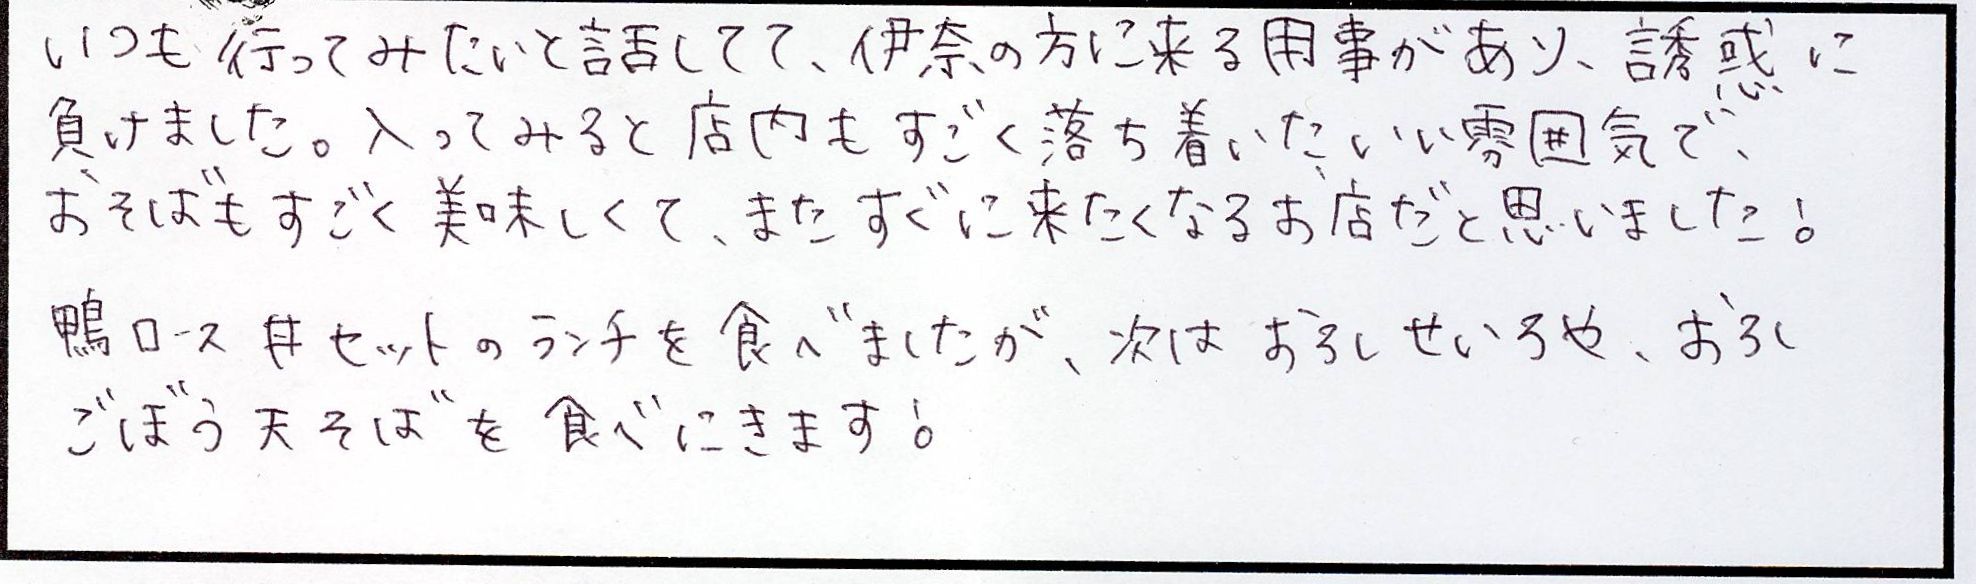 いつも行ってみたいと話してて、伊奈の方に来る用事があり、誘惑に
負けました。入ってみると店内もすごく落ち着いたいい雰囲気で、
おそばもすごく美味しくて、またすぐに来たくなるお店だと思いました!
鴨ロース丼セットのランチを食べましたが、次はおろしせいろや、おろし
ごぼう天そばを食べにきます!